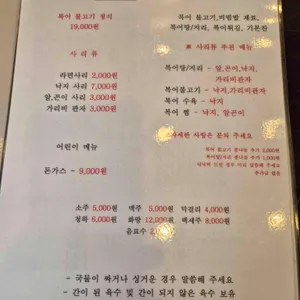 복어 불고기 정식
19,000원
사 리 류
라면사리 2,000원
낙지 사리 7,000원
알,곤이 사리 3,000원
가리비 관자 3,000원
어린이 메뉴
돈가스 ~ 9,000원
소주 5,000원 맥주 5,000원 막걸리 4,000원
청하 6,000원 화랑 12,000원 백세주 8,000원
음료수
복어 불고기,비빔밥 재료,
복어탕/지리, 복어튀김, 기본찬
※ 사리류 추천 메뉴
복어탕/지리 ~ 알,곤이,낙지,
가리비관자
복어불고기 ~ 낙지,가리비관자
복어 수육 ~ 낙지
복어 찜 ~ 낙지, 알곤이
자세한 사항은 문의 주세요
복어 불고기 콩나물 추가
복어탕/지리 콩나물 추가
- 국물이 짜거나 싱거운 경우 말씀해 주세요
- 간이 된 육수 및 간이 되지 않은 육수 보유